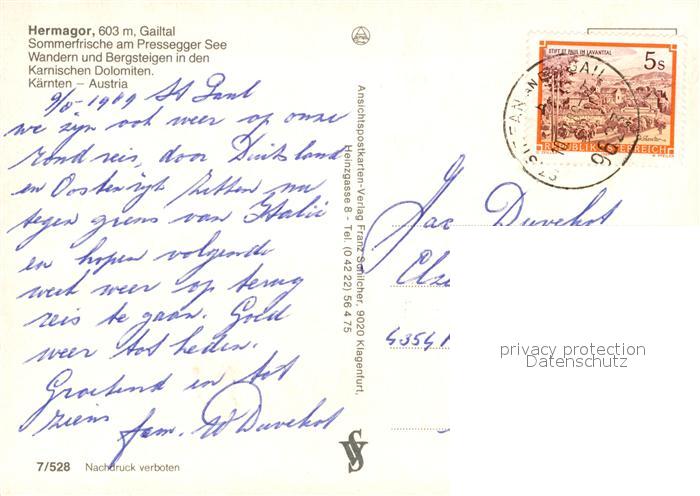 Hermagor, 603 m, Gailtal
Sommerfrische am Pressegger See
Wandern und Bergsteigen in den
Karnischen Dolomiten.
Kärnten – Austria
1989 St Paul
we zijn ook weer op onze
rondreis, door Duitsland
en Oostenrijk zitten nu
tegen grens van Italië
en hopen volgende
week weer op terug
reis te gaan. Goed
weer tot heden.
Groetend en tot
ziens fam. W Duvekot
7/528 Nachdruck verboten
Ansichtspostkarten-Verlag Franz Schilcher, 9020 Klagenfurt,
Heinzgasse 8 - Tel. (0 42 22) 56 4 75
STIFT ST. PAUL IM LAVANTTAL
5s
REPUBLIK ÖSTERREICH
Duvekot
4354
privacy protection
Datenschutz